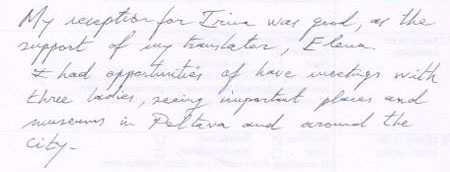 My reception for Irina was good, as the
support of my translator, Elena.
I had opportunities of have meetings with
three ladies, seeing important places and
museums in Poltava and around the
city.